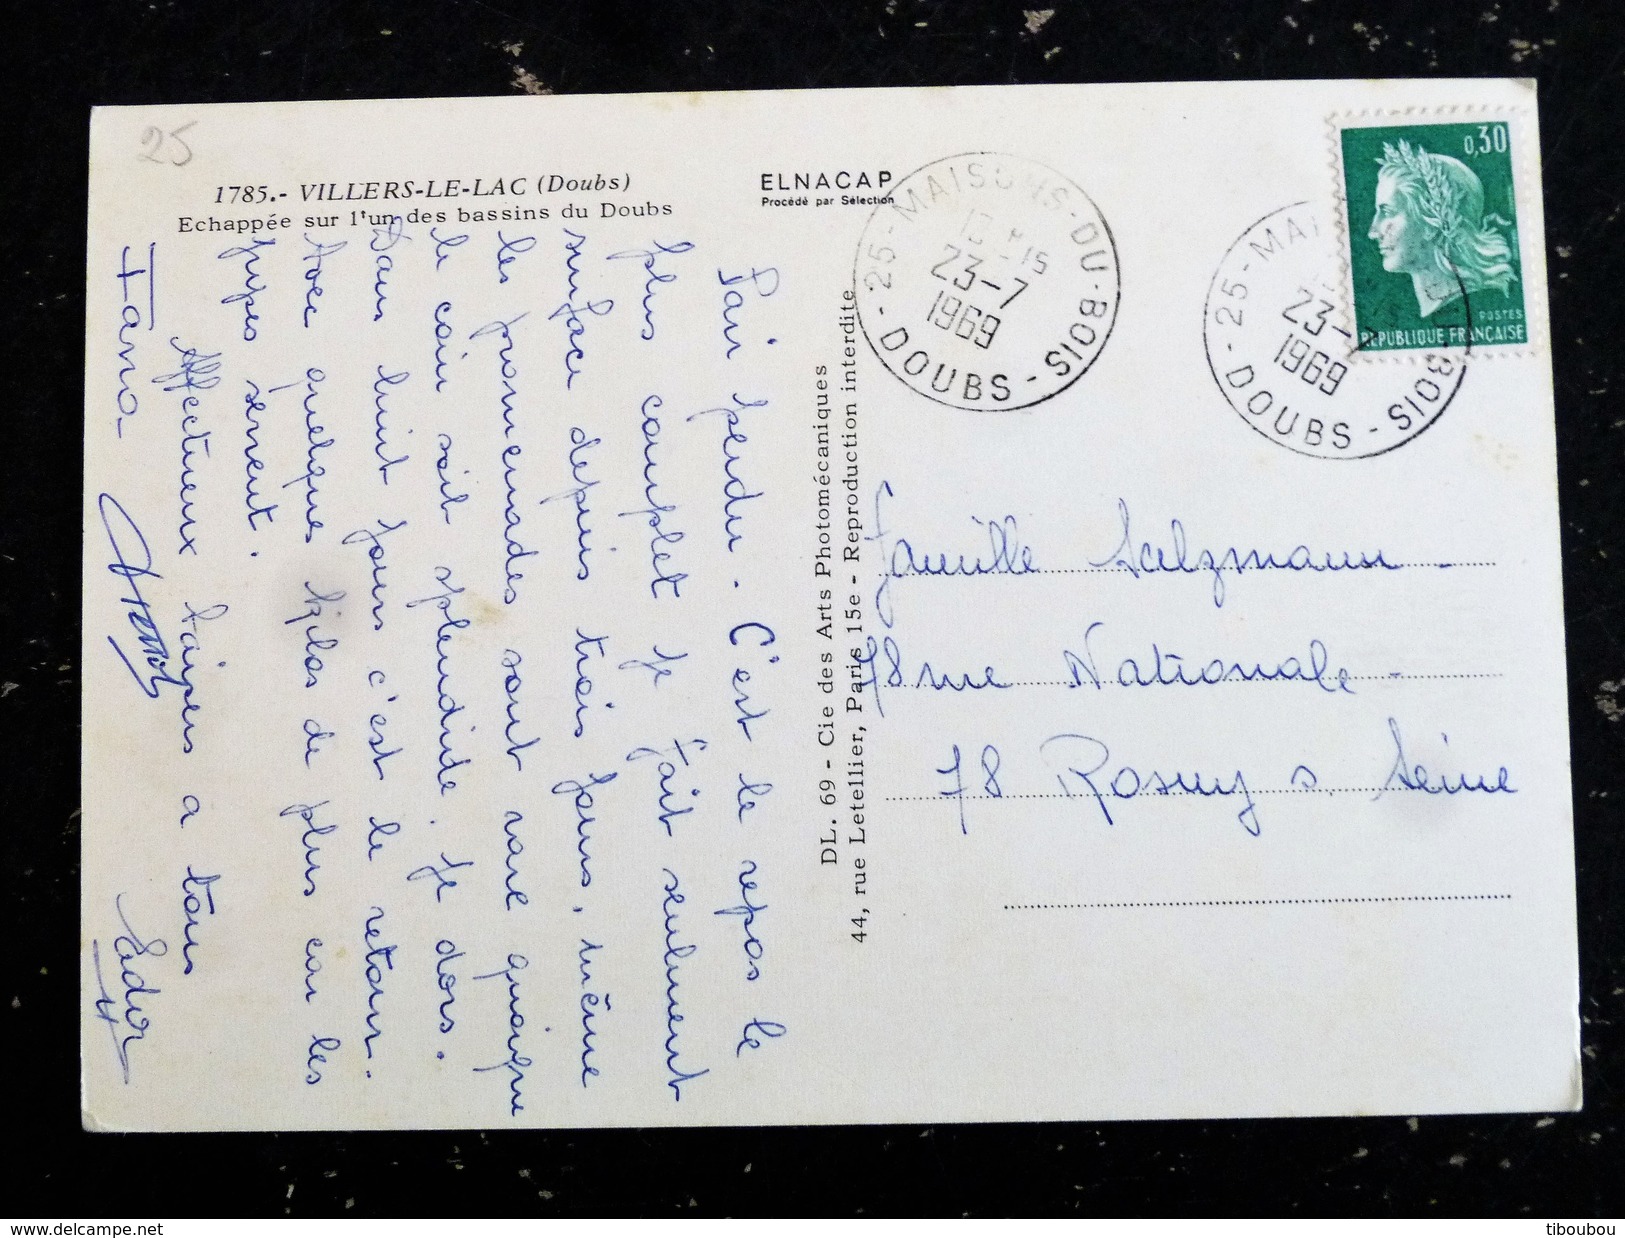 25
1785.- VILLERS-LE-LAC (Doubs)
Echappée sur l'un des bassins du Doubs
ELNACAP
Procédé par Sélection
25 - MAISONS-DU-BOIS - DOUBS -
23-7
1969
25 - MAI BOIS - DOUBS -
23-
1969
0,30
POSTES
REPUBLIQUE FRANÇAISE
Pari perdu. C'est le repos le
plus complet je fait seulement
surface depuis trois jours, même
les promenades sont rare quoique
le coin soit splendide. Je dors.
Dans huit jours c'est le retour.
Avec quelques kilos de plus car les
jupes serrent.
Affectueux baisers a tous
DL. 69 - Cie des Arts Photomécaniques
44, rue Letellier, Paris 15e - Reproduction interdite
Famille Salzmann -
78 rue Nationale -
78 Rosny s. Seine
tiboubou